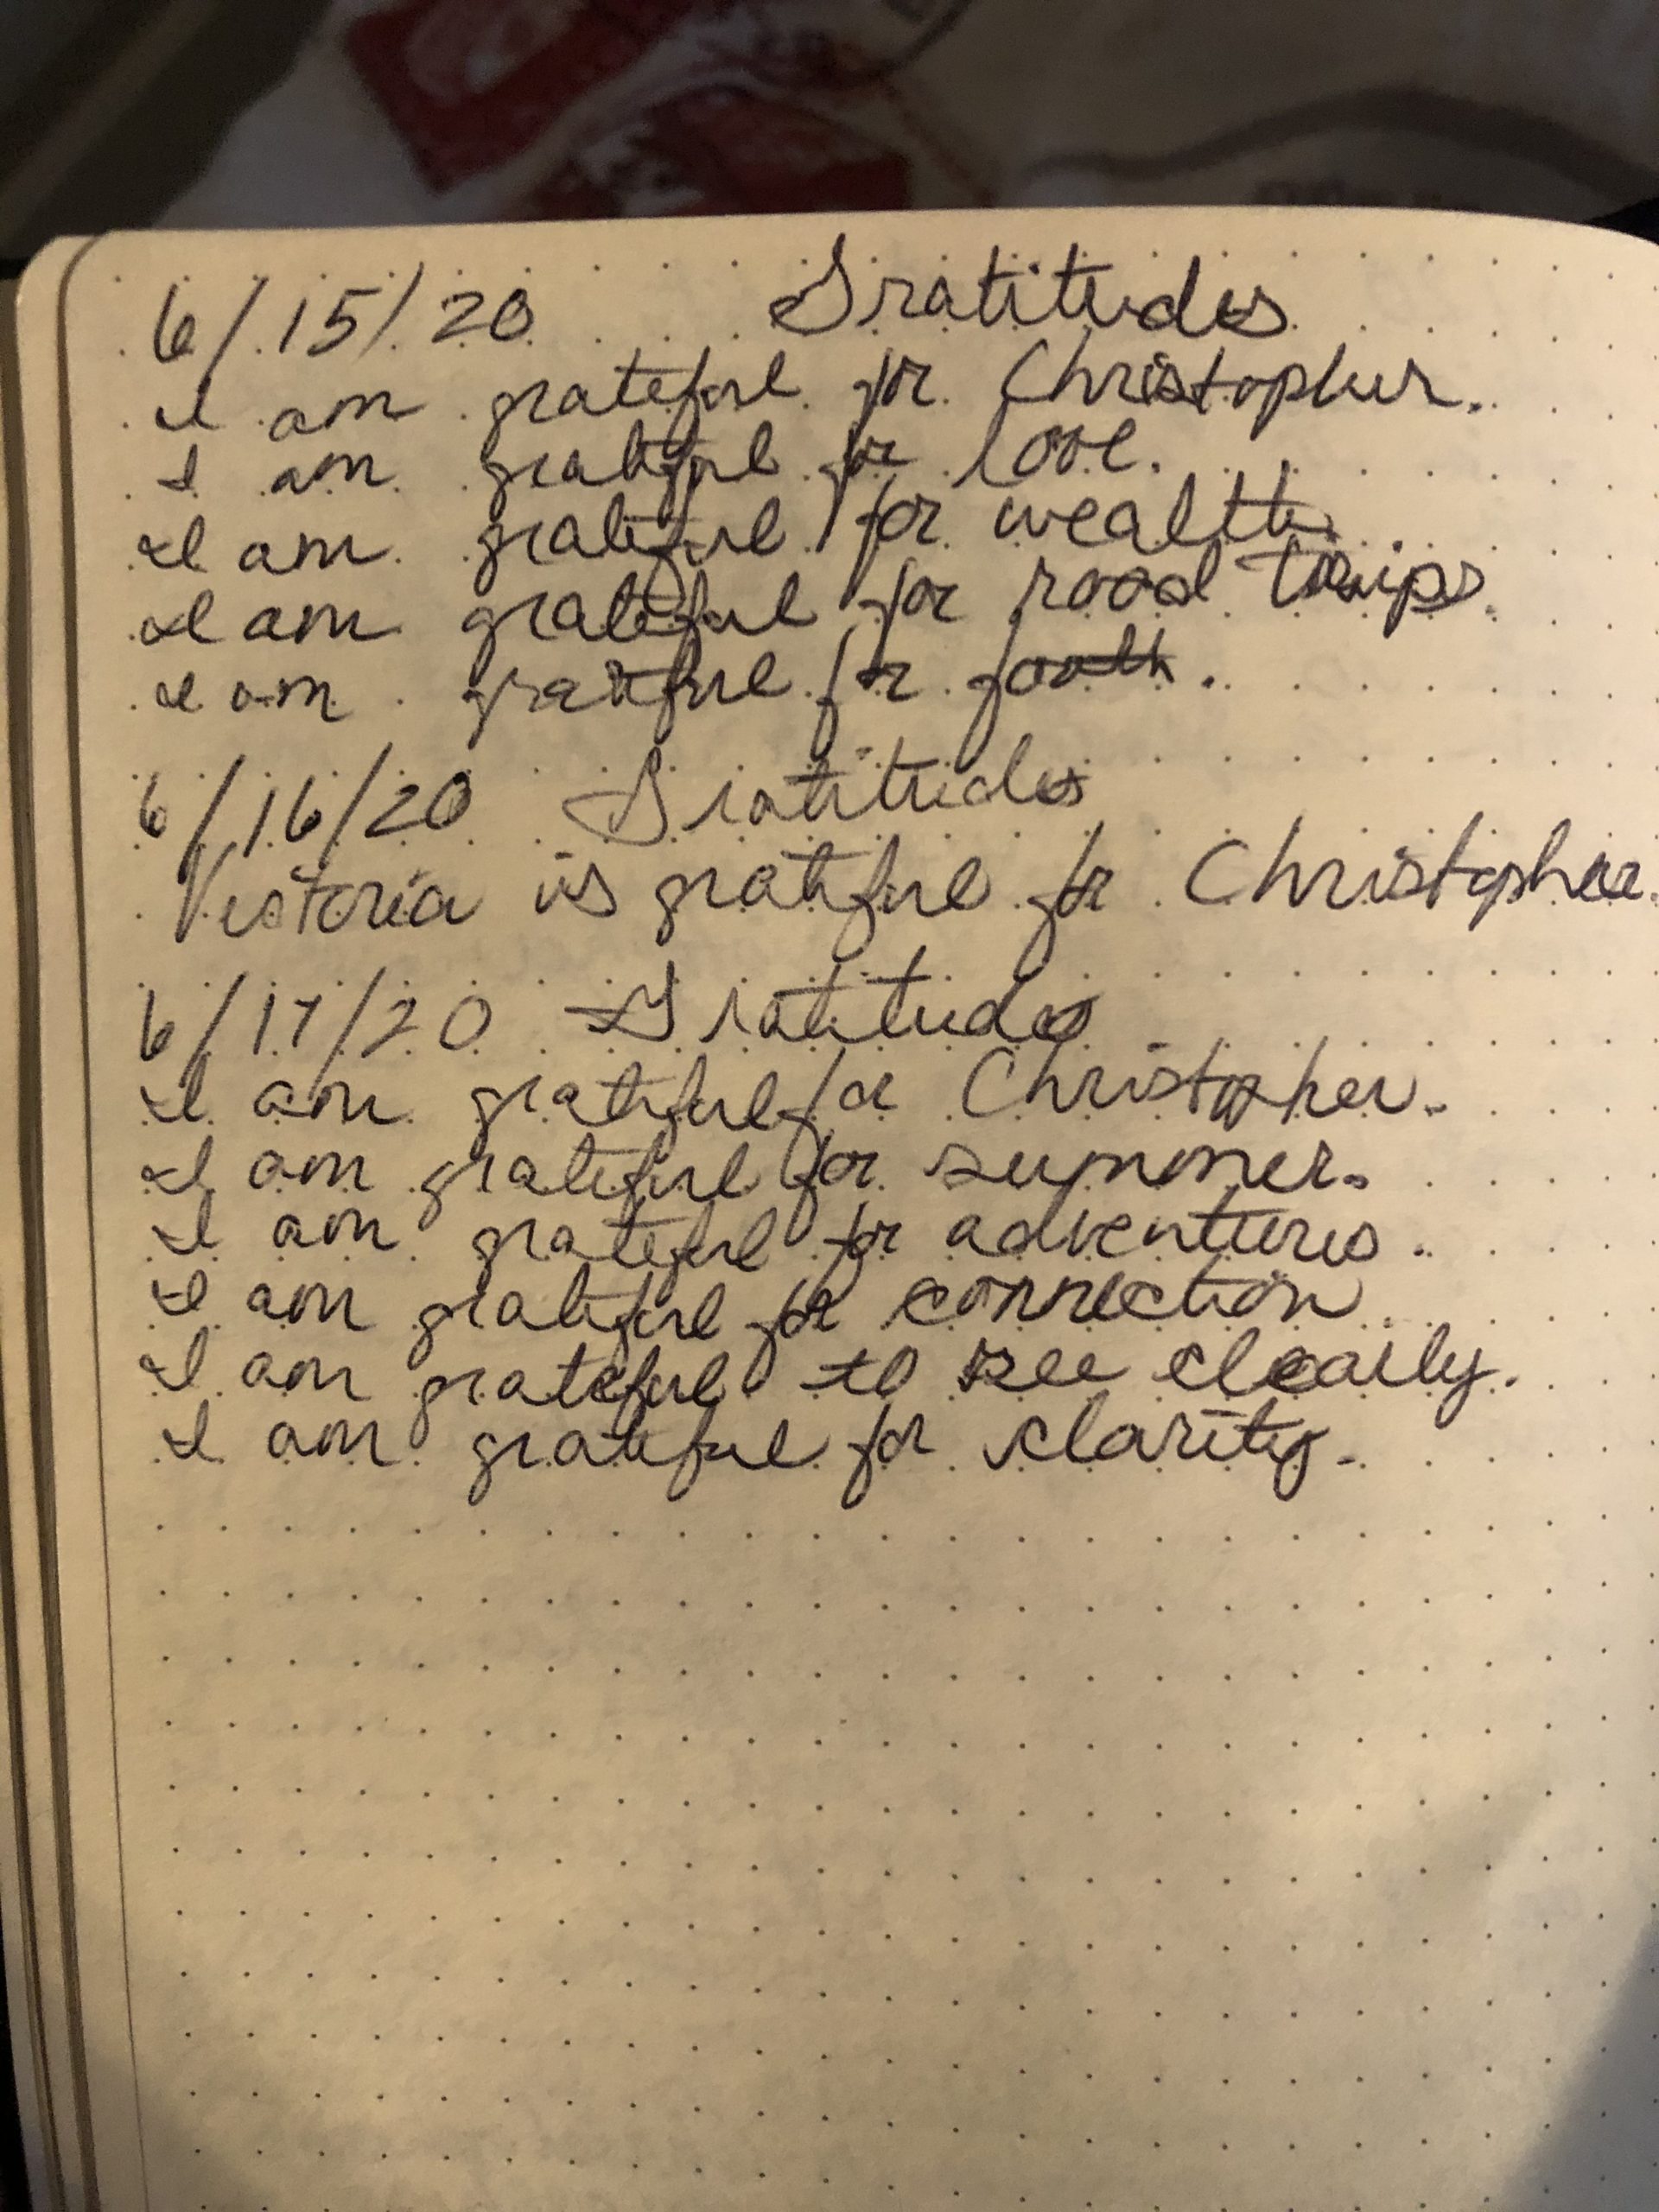 6/15/20 Gratitudes
I am grateful for Christopher.
I am grateful for love.
I am grateful for wealth.
I am grateful for road trips.
I am grateful for
6/16/20 Gratitudes
Victoria is grateful for Christopher.
6/17/20 Gratitudes
I am grateful for Christopher.
I am grateful for summer.
I am grateful for adventures.
I am grateful for connection
I am grateful to see clearly.
I am grateful for clarity.